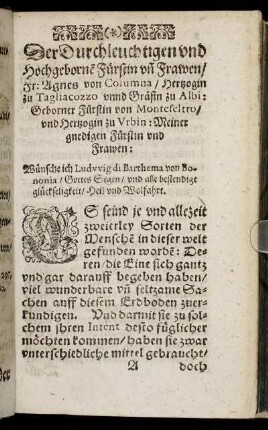 Der Durchleuchtigen vnd
Hochgebornē Fürstin vñ Frawen/
Fr: Agnes von Columna/ Hertzogin
zu Tagliacozzo vnnd Gräfin zu Albi:
Geborner Fürstin von Montefeltro/
vnd Hertzogin zu Vrbin: Meiner
gnedigen Fürstin vnd
Frawen:
Wünsche ich Ludvvig di Barthema von Bo-
nonia/ Gottes Segen/ vnd alle bestendige
glückseligkeit/ Heil vnd Wolfahrt.
ES seind je vnd allezeit
zweierley Sorten der
Menschē in dieser welt
gefunden wordē: De-
ren/ die Eine sich gantz
vnd gar darauff begeben haben/
viel wunderbare vñ seltzame Sa-
chen auff diesem Erdboden zuer-
kundigen. Vnd darmit sie zu sol-
chem jhren Intent desto füglicher
möchten kommen/ haben sie zwar
vnterschiedliche mittel gebraucht/
A doch